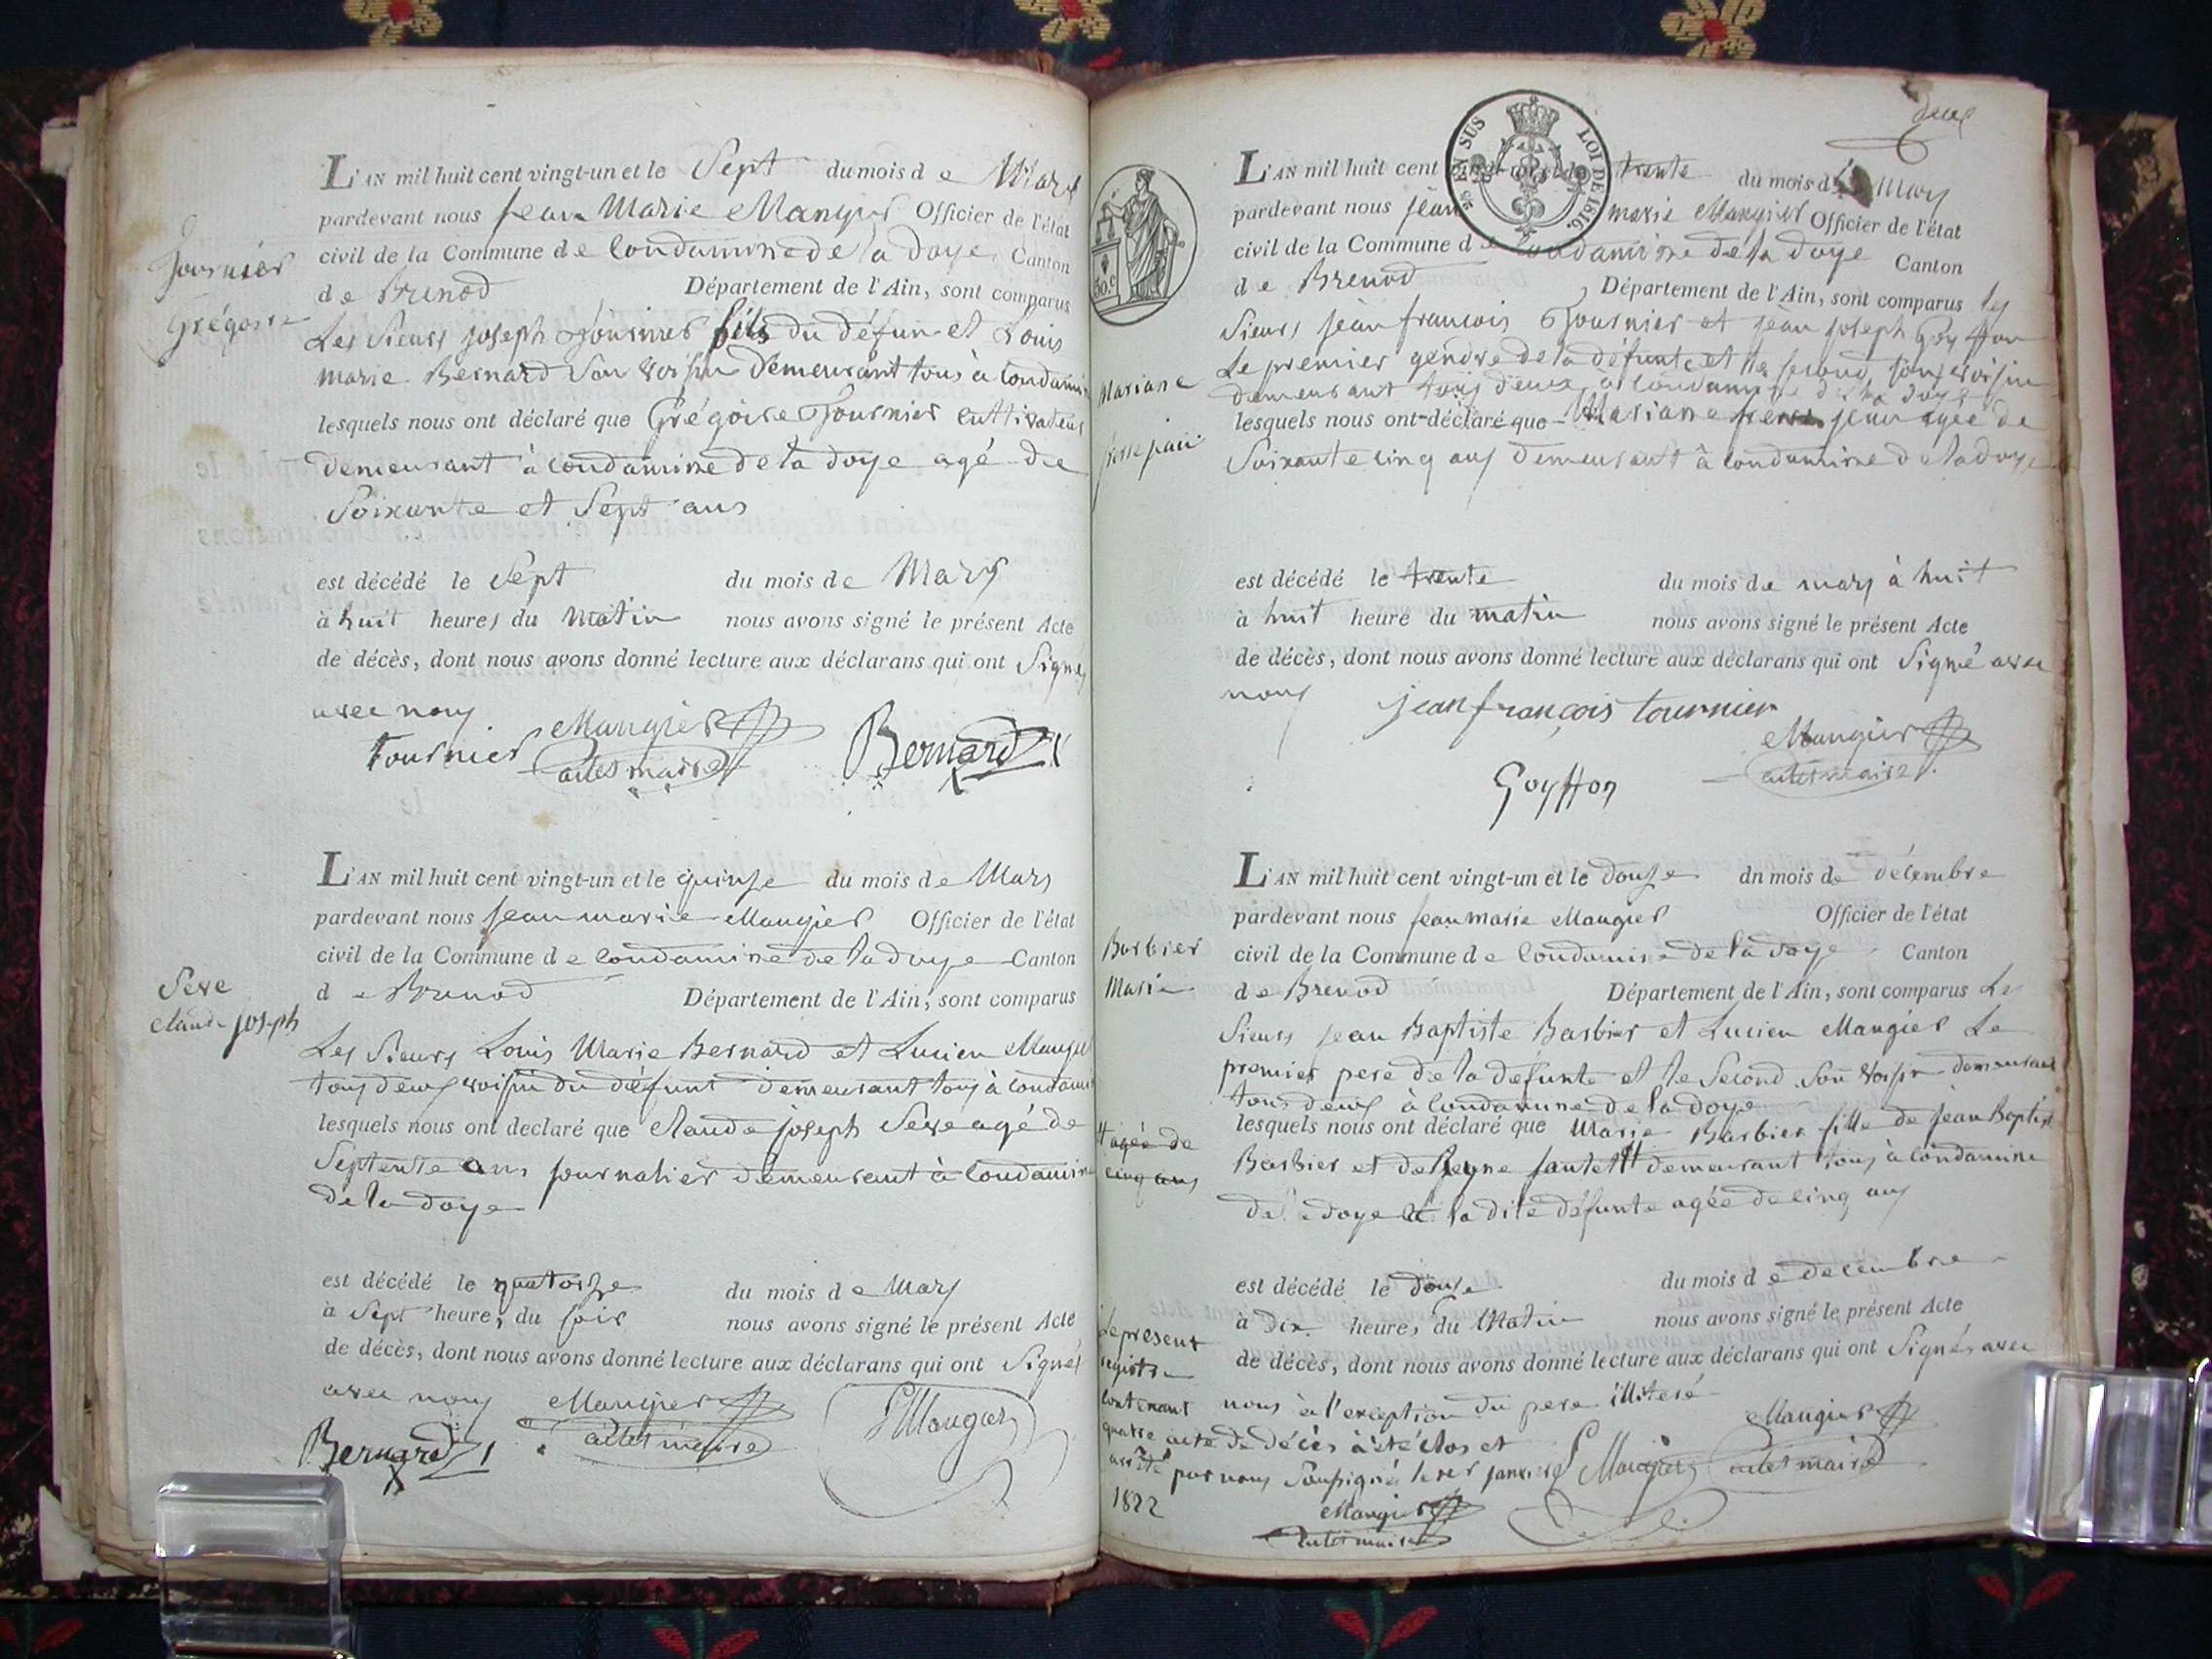 L'AN mil huit cent vingt-un et le Sept du mois de Mars
pardevant nous jean Marie Maugier Officier de l'état
civil de la Commune de Condamine de la doye Canton
de Brenod Département de l'Ain, sont comparus
Les Sieurs joseph Tournier fils du défun et Louis
marie Bernard Son Voisin Demeurant tous à Condamin
lesquels nous ont déclaré que Grégoire Tournier cultivateur
Demeurant à Condamine de la doye agé de
Soixante et Sept ans
est décédé le Sept du mois de Mars
à huit heures du Matin nous avons signé le présent Acte
de décès, dont nous avons donné lecture aux déclarans qui ont Signés
avec nous
Tournier Maugier Bernard
Tournier
Grégoire
L'AN mil huit cent vingt-un et le quinze du mois de Mars
pardevant nous jean marie Maugier Officier de l'état
civil de la Commune de Condamine de la doye Canton
de Brenod Département de l'Ain, sont comparus
Les Sieurs Louis Marie Bernard et Lucien Maugier
tous deux voisin du défunt demeurant tous à Condami
lesquels nous ont declaré que Claude joseph Seve agé de
Septente ans journalier demeurant à Condamine
de la doye
est décédé le quatorze du mois de Mars
à Sept heures du soir nous avons signé le présent Acte
de décès, dont nous avons donné lecture aux déclarans qui ont Signés
avec nous Maugier
Bernard Maugier
Seve
Claude joseph
deux
50 EN SUS LOI DE 1816.
50.c
L'AN mil huit cent trente du mois de Mars
pardevant nous jean marie Maugier Officier de l'état
civil de la Commune de Condamine de la doye Canton
de Brenod Département de l'Ain, sont comparus les
Sieurs jean francois Tournier et jean joseph Goyffon
Le premier gendre de la défunte et le second son voisin
demeurant tous deux à Condamine de la doye
lesquels nous ont déclaré que Mariane jean agée de
Soixante cinq ans Demeurant à Condamine de la doye
est décédé le trente du mois de mars à huit
à huit heure du matin nous avons signé le présent Acte
de décès, dont nous avons donné lecture aux déclarans qui ont Signé avec
nous jean françois tournier
Maugier
Goyffon
Mariane
L'AN mil huit cent vingt-un et le douze du mois de décembre
pardevant nous jean marie Maugier Officier de l'état
civil de la Commune de Condamine de la doye Canton
de Brenod Département de l'Ain, sont comparus Les
Sieurs jean Baptiste Barbier et Lucien Maugier Le
premier pere de la défunte et le Second Son Voisin demeurant
tous deux à Condamine de la doye
lesquels nous ont déclaré que Marie Barbier fille de jean Baptist
Barbier et de demeurant tous à Condamine
de la doye et la dite défunte agée de cinq ans
est décédé le douze du mois de decembre
à Dix heures du Matin nous avons signé le présent Acte
de décès, dont nous avons donné lecture aux déclarans qui ont Signés avec
nous à l'exception du pere illiteré
Maugier
Maugier
Barbier
Marie
agée de
cinq ans
Le present
registre
contenant
quatre acte de décès à été clos et
arrêté par nous Soussigné le 1er janvier
1822
Maugier